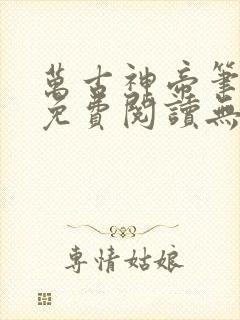 萬古神帝筆
免費閱讀無
專情姑娘